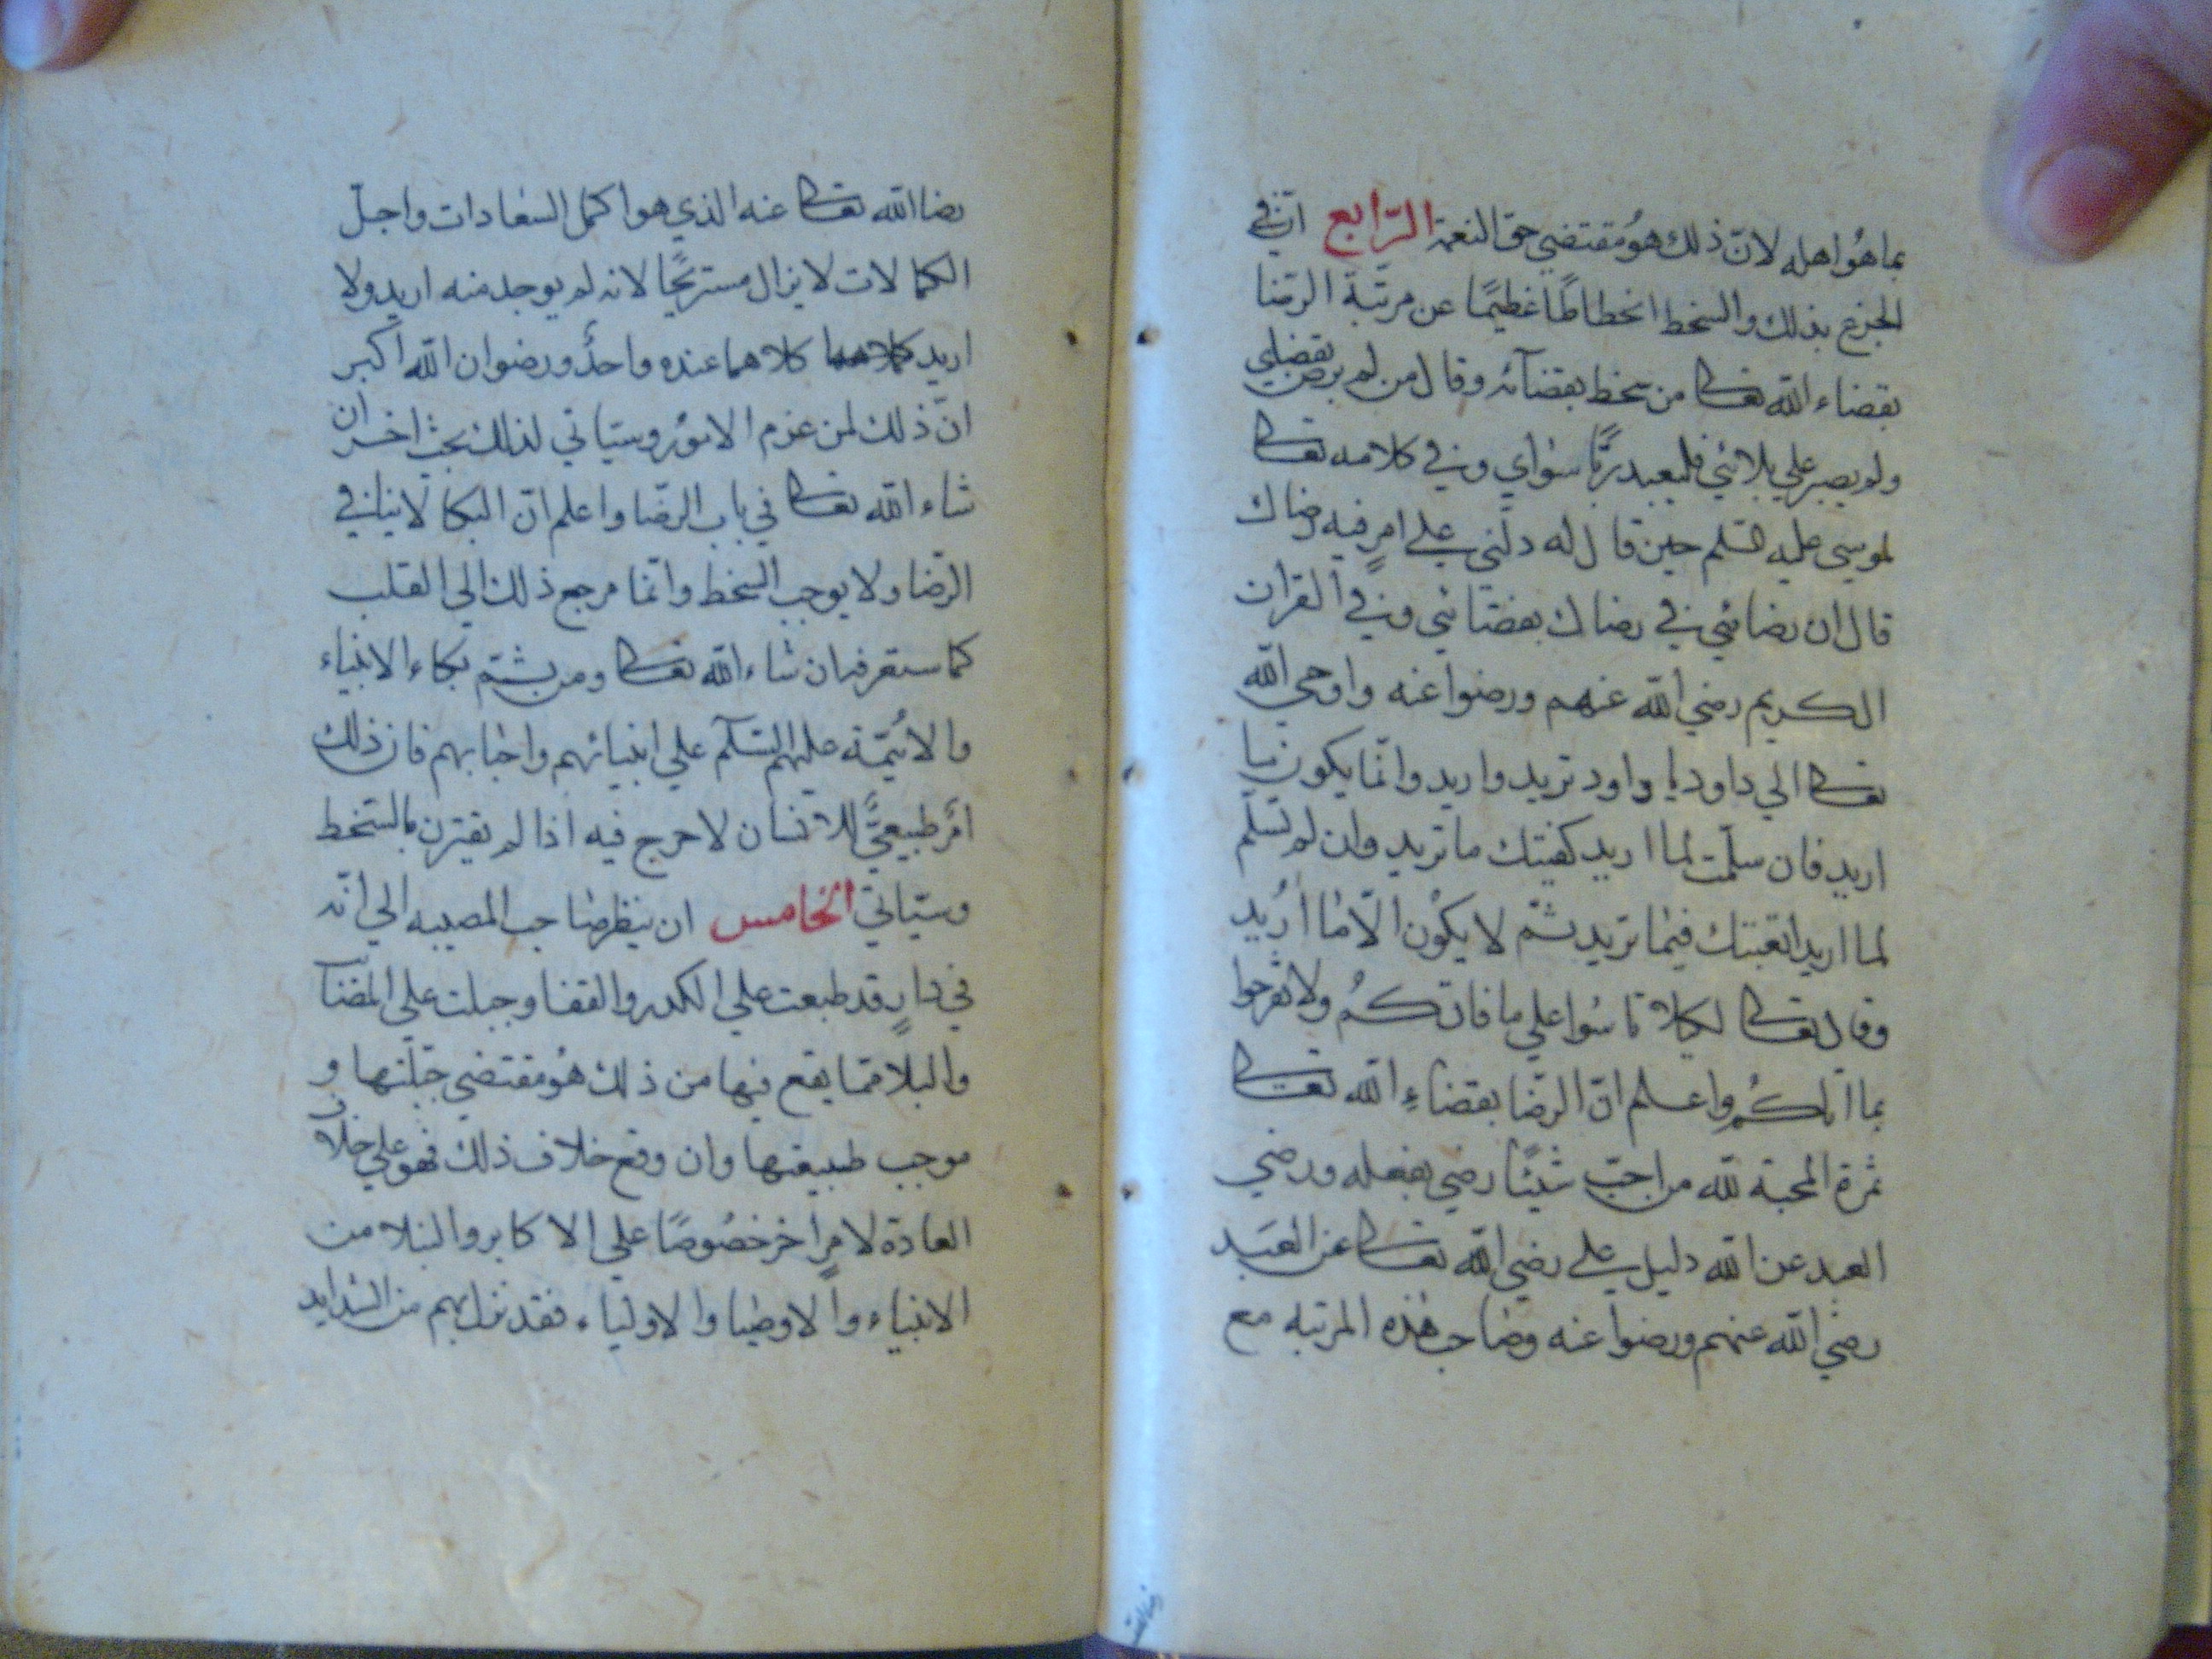 بما هُو اهله لانّ ذلك هوُ مقتضي حق النعمة الرّابع انّ في
الجزع بذلك والسخط انحطاطًا عظيمًا عن مرتبة الرّضا
بقضاء الله تعالى من سخط بقضآئه وقال من لم يرض بقضائي
ولم يصبر علي بلائي فليعبد ربًّا سواي وفي كلامه تعالى
لموسي عليه السلم حين قال له دلّني علي امرٍ فيه رضاك
قال ان رضائي في رضاك بقضائي وفي القران
الكريم رضي الله عنهم ورضوا عنه واوحي الله
تعالى الي داود يا داود تريد واريد وانّما يكون ما
اريد فان سلّمت لما اريد كفيتك ما تريد وان لم تسلّم
لما اريد اتعبتك فيما تريد ثمّ لا يكوُن الّا ما اُريد
وقال تعالى لكيلا تاسُوا علي ما فاتكمُ ولا تفرحوا
بما اتٰكمُ واعلم انّ الرضّا بقضاءِ الله تعالى
ثمرة المحبة لله من احبّ شيئًا رضي بفعله ورضي
العبد عن الله دليل علي رضي الله تعالى عن العَبد
رضي الله عنهم ورضوا عنه وصاحب هٰذه المرتبه مع
رضا الله
رضا الله تعالى عنه الذي هو اكمل السعادات واجلّ
الكمالات لا يزال مستريحًا لانه لم يوجد منه اريد ولا
اريد كلاهما كلاهما عنده واحدٌ ورضوان الله اكبر
انّ ذلك لمن عزم الاموُر وسياتي لذلك بحث اخر ان
شاء الله تعالى في باب الرضّا واعلم انّ البكا لا ينافي
الرّضا ولا يوجب السخط وانّما مرجع ذلك الي القلب
كما ستعرف ان شاء الله تعالى ومن ثمّ بكاء الانبياء
والائمّة عليهم السّلٓم علي ابنيائهم واحبابهم فان ذلك
امرٌ طبيعيٌّ للانسان لا حرج فيه اذا لم يقترن بالسّخط
وسيّاتي الخامس ان ينظر صاحب المصيبه الي انّه
في دارٍ قد طبعت علي الكدر والقفا وجبلت علي المصٓا
والبلا فما يقع فيها من ذلك هوُ مقتضي جبلّتها و
موجب طبيعتها وان وقع خلاف ذلك فهو علي خلاف
العادة لامرٍ اخر خصُوصًا علي الاكابر والنبلا من
الانبياء والاوصيا والاولياء فقد نزل بهم من الشدايد